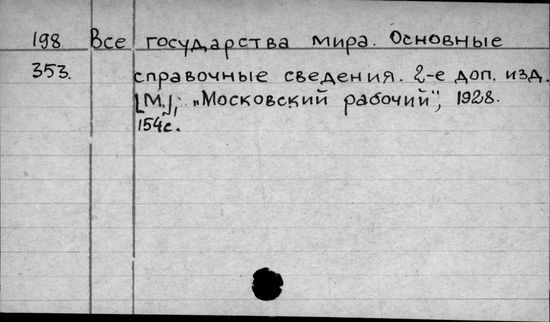 198 Все государства мира. Основные
353. справочные сведения. 2-е доп. изд.
[М.], „Московский рабочий", 1928.
154с.